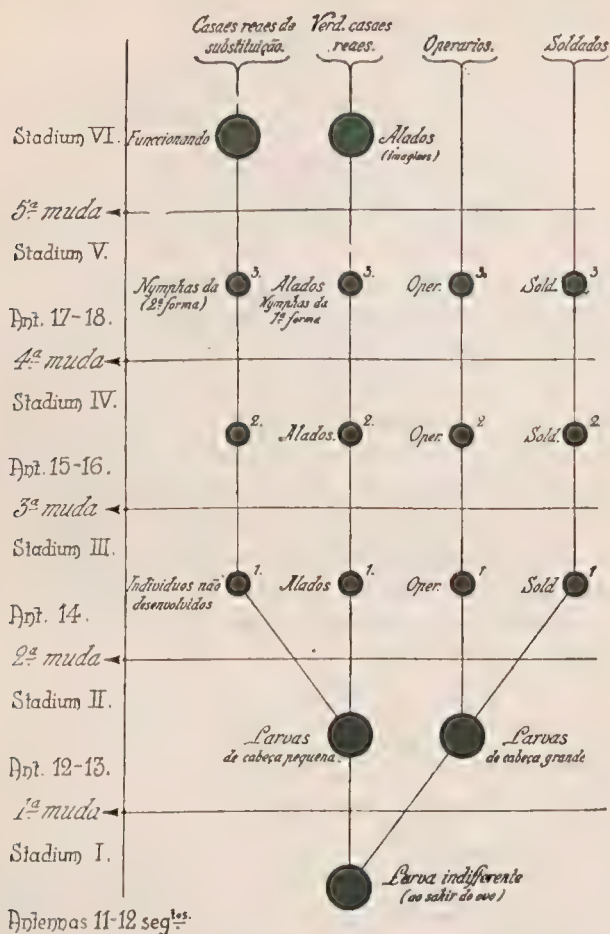 Casaes reaes de
substituição.
Verd. casaes
reaes.
Operarios.
Soldados
Stadium VI.
Funccionando
Alados
(imagines)
5ª muda
Stadium V.
Nymphas da
(2ª forma)
3.
Alados
Nymphas da
1ª forma
3.
Oper.
3.
Sold.
3
Ant. 17-18.
4ª muda
Stadium IV.
2.
Alados.
2.
Oper.
2
Sold.
2
Ant. 15-16.
3ª muda
Stadium III.
Individuos não
desenvolvidos
1.
Alados
1.
Oper.
1
Sold
1
Ant. 14.
2ª muda
Stadium II.
Larvas
de cabeça pequena.
Larvas
de cabeça grande
Ant. 12-13.
1ª muda
Stadium I.
Larva indifferente
(ao sahir do ovo)
Antennas 11-12 segtos.